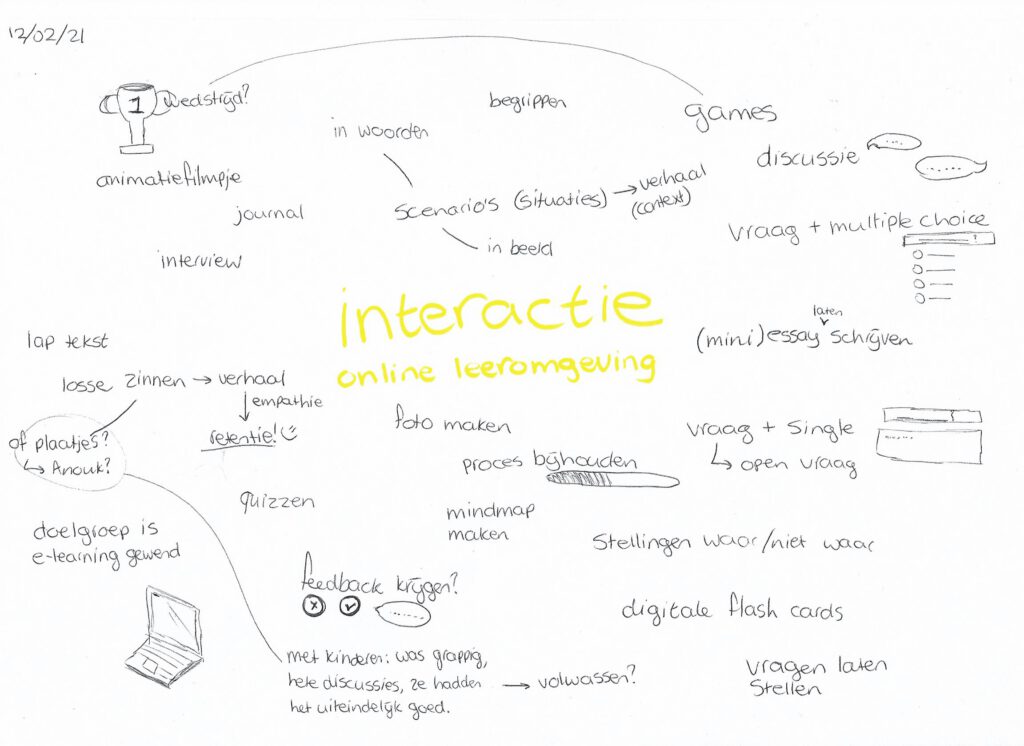 12/02/21
1 wedstrijd?
begrippen
games
in woorden
discussie
animatiefilmpje
scenario's (situaties) → verhaal
(context)
journal
vraag + multiple choice
interview
in beeld
interactie
online leeromgeving
laten
(mini) essay schrijven
lap tekst
losse zinnen → verhaal
↓ empathie
retentie!
of plaatjes?
↳ Anouk?
foto maken
vraag + single
↳ open vraag
proces bijhouden
quizzen
mindmap
maken
doelgroep is
e-learning gewend
stellingen waar/niet waar
feedback krijgen?
digitale flash cards
met kinderen: was grappig,
hele discussies, ze hadden → volwassen?
het uiteindelijk goed.
vragen laten
stellen